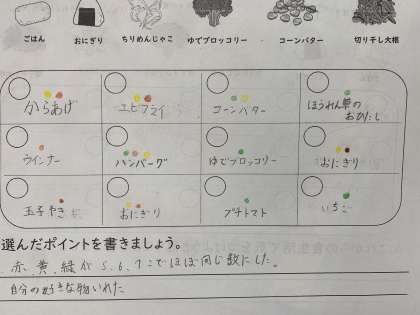 ごはん おにぎり ちりめんじゃこ ゆでブロッコリー コーンバター 切り干し大根
からあげ エビフライ コーンバター ほうれん草の
おかたし
ウインナー ハンバーグ ゆでブロッコリー おにぎり
玉子やき おにぎり プチトマト いちご
選んだポイントを書きましょう。
赤、黄、緑が5、6、7こでほぼ同じ数にした。
自分の好きな物いれた